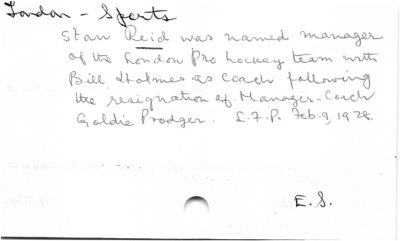 London - Sports
Stan Reid was named manager
of the London Pro hockey team with
Bill Holmes as coach following
the resignation of Manager-Coach
Goldie Prodger. L.F.P. Feb. 9, 1928.
E.S.